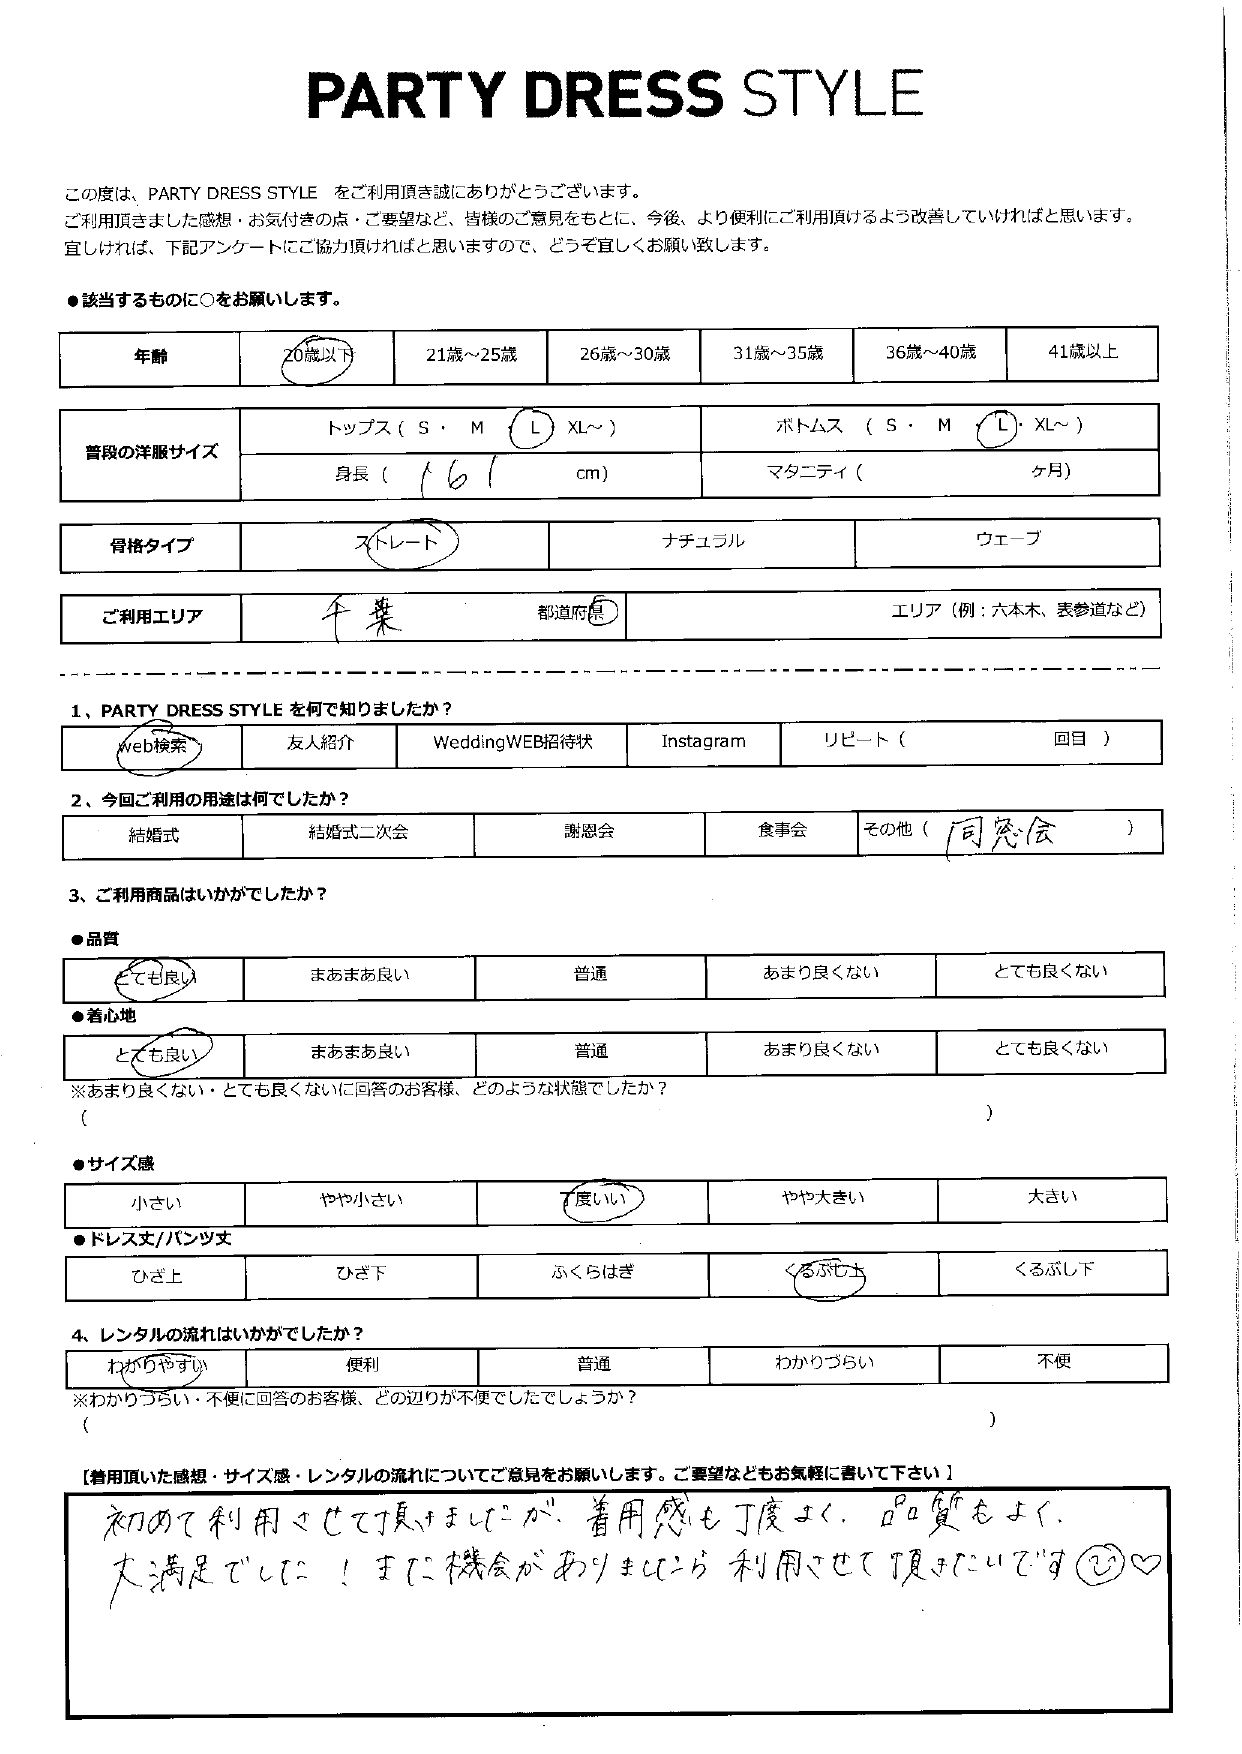 PARTY DRESS STYLE
この度は、PARTY DRESS STYLE をご利用頂き誠にありがとうございます。
ご利用頂きました感想・お気付きの点・ご要望など、皆様のご意見をもとに、今後、より便利にご利用頂けるよう改善していければと思います。
宜しければ、下記アンケートにご協力頂ければと思いますので、どうぞ宜しくお願い致します。
●該当するものに○をお願いします。
年齢 20歳以下 21歳～25歳 26歳～30歳 31歳～35歳 36歳～40歳 41歳以上
普段の洋服サイズ トップス ( S ・ M ・ L ・ XL～ ) ボトムス ( S ・ M ・ L ・ XL～ )
身長 ( 161 cm) マタニティ ( ヶ月)
骨格タイプ ストレート ナチュラル ウェーブ
ご利用エリア 千葉 都道府県 エリア（例：六本木、表参道など）
1、PARTY DRESS STYLE を何で知りましたか？
web検索 友人紹介 WeddingWEB招待状 Instagram リピート ( 回目 )
2、今回ご利用の用途は何でしたか？
結婚式 結婚式二次会 謝恩会 食事会 その他 ( 同窓会 )
3、ご利用商品はいかがでしたか？
●品質
とても良い まあまあ良い 普通 あまり良くない とても良くない
●着心地
とても良い まあまあ良い 普通 あまり良くない とても良くない
※あまり良くない・とても良くないに回答のお客様、どのような状態でしたか？
( )
●サイズ感
小さい やや小さい 丁度いい やや大きい 大きい
●ドレス丈/パンツ丈
ひざ上 ひざ下 ふくらはぎ くるぶし上 くるぶし下
4、レンタルの流れはいかがでしたか？
わかりやすい 便利 普通 わかりづらい 不便
※わかりづらい・不便に回答のお客様、どの辺りが不便でしたでしょうか？
( )
【着用頂いた感想・サイズ感・レンタルの流れについてご意見をお願いします。ご要望などもお気軽に書いて下さい】
初めて利用させて頂きましたが、着用感も丁度よく、品質もよく、
大満足でした！また機会がありましたら利用させて頂きたいです☺♡